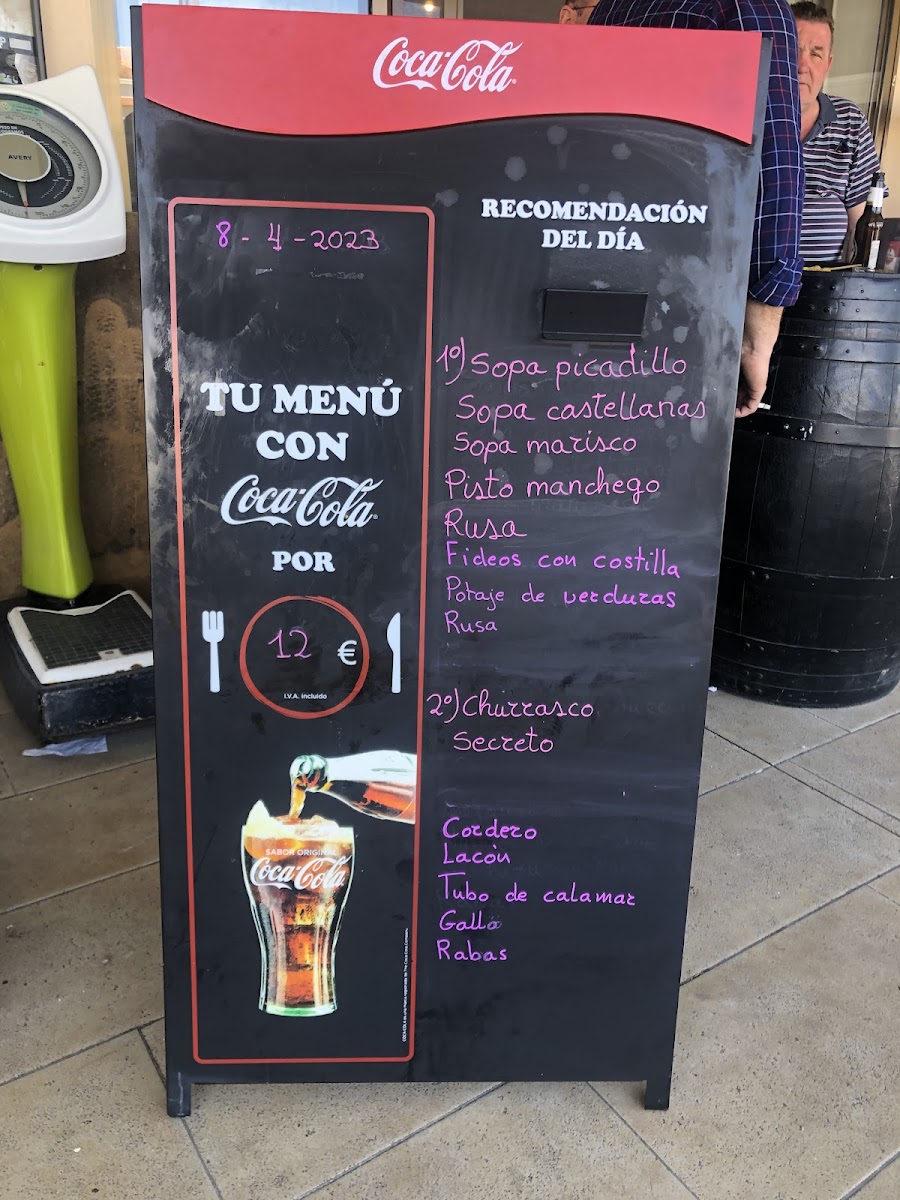 Coca-Cola
8 - 4 - 2023
TU MENÚ
CON
Coca-Cola
POR
12 €
I.V.A. incluido
SABOR ORIGINAL
Coca-Cola
RECOMENDACIÓN
DEL DÍA
1º) Sopa picadillo
Sopa castellanas
Sopa marisco
Pisto manchego
Rusa
Fideos con costilla
Potaje de verduras
Rusa
2º) Churrasco
Secreto
Cordero
Lacòn
Tubo de calamar
Gallo
Rabas
AVERY